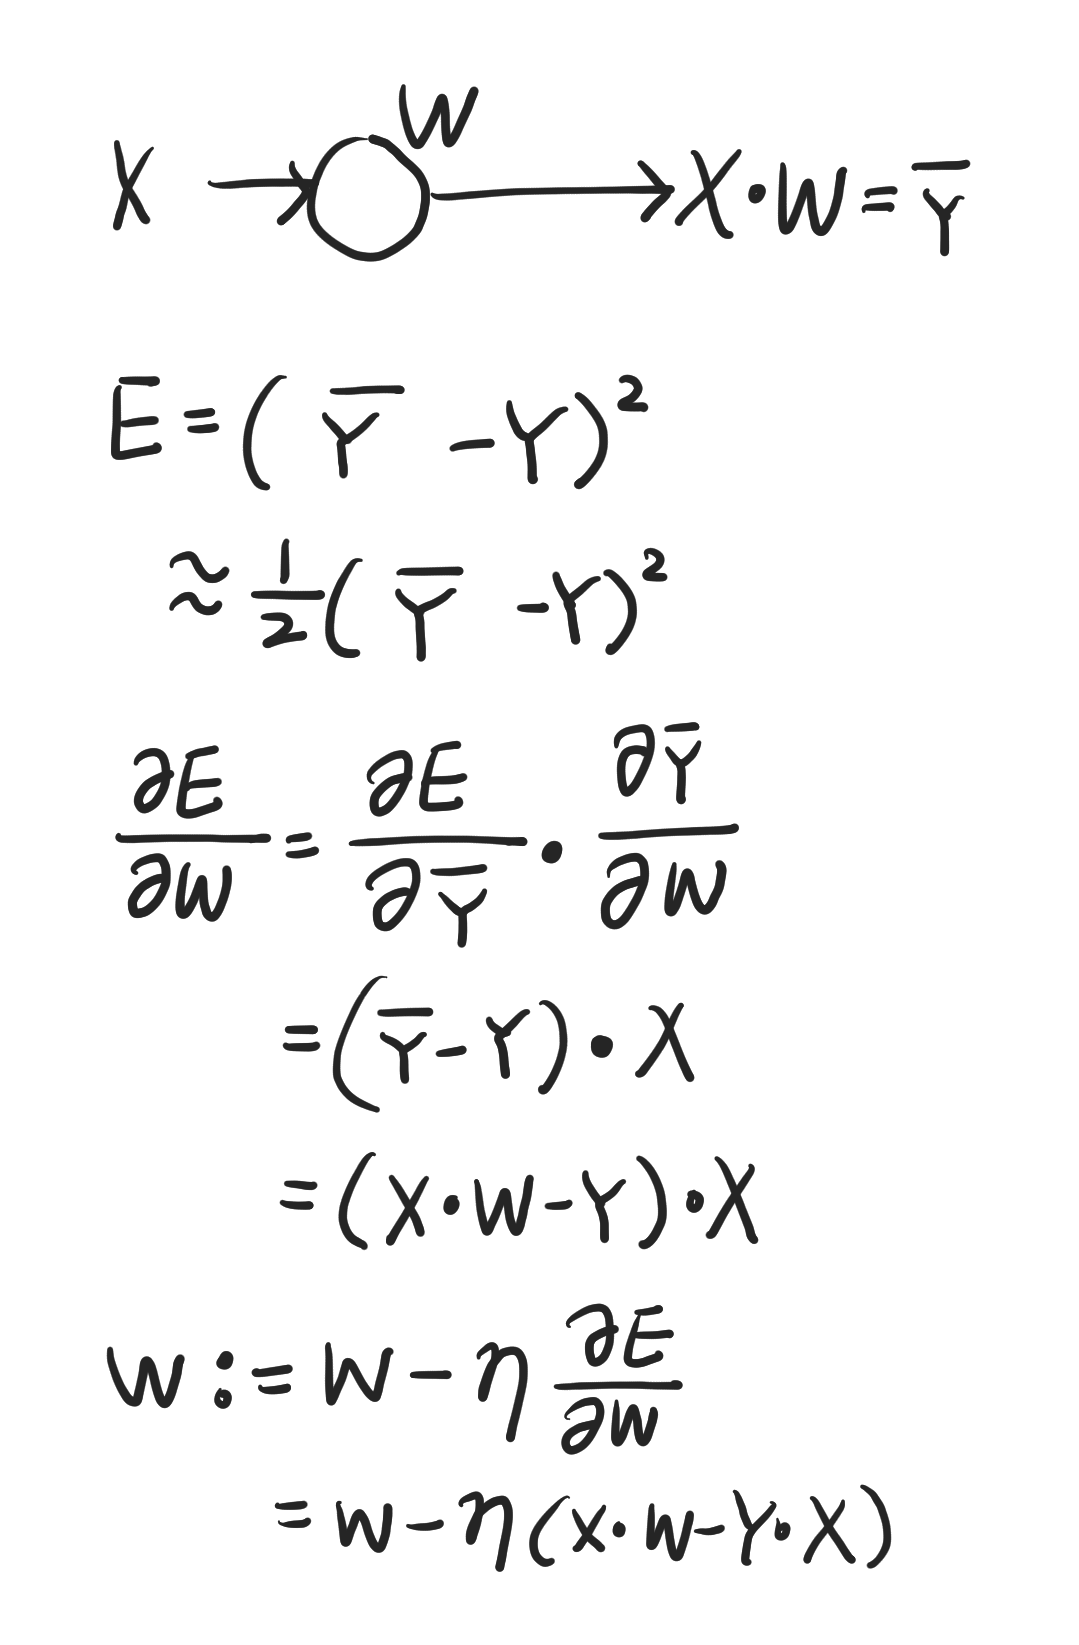 W
X → ○ → X·W = Ȳ
E = (Ȳ - Y)²
≈ 1/2 (Ȳ - Y)²
∂E/∂W = ∂E/∂Ȳ · ∂Ȳ/∂W
= (Ȳ - Y) · X
= (X·W - Y) · X
W := W - η ∂E/∂W
= W - η(X·W - Y·X)